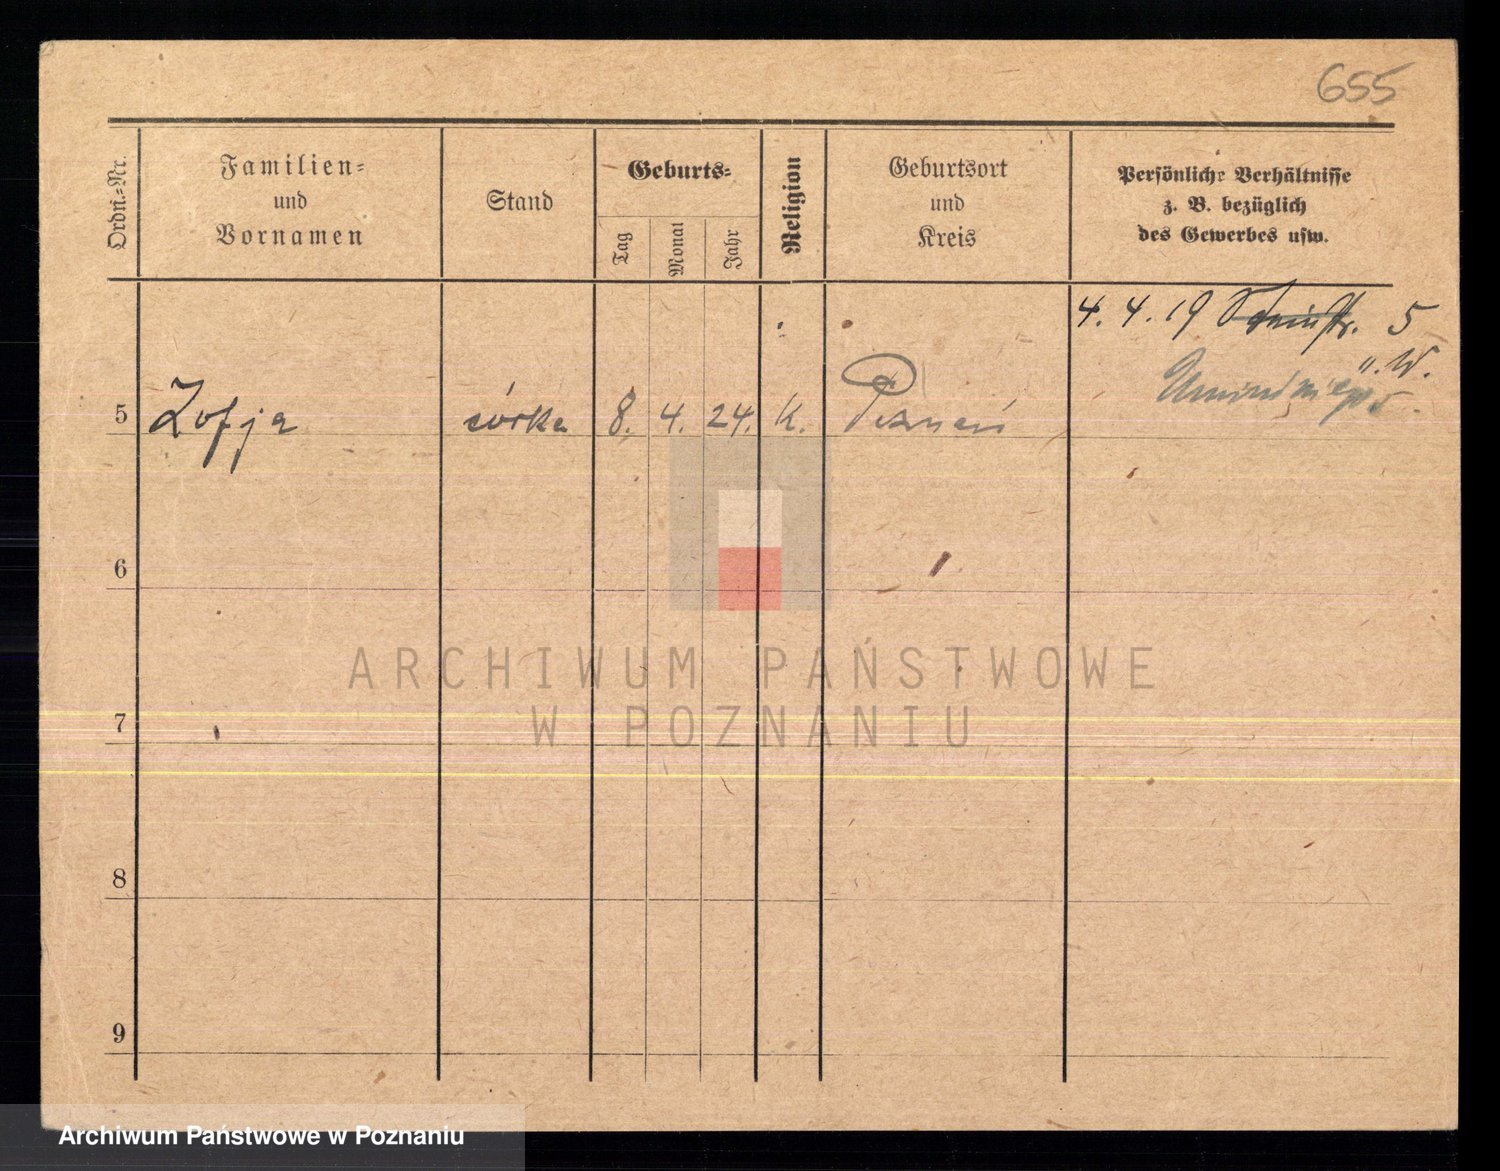 655
Ordn.-Nr.
Familien-
und
Vornamen
Stand
Geburts-
Tag
Monat
Jahr
Religion
Geburtsort
und
Kreis
Persönliche Verhältnisse
z. B. bezüglich
des Gewerbes usw.
4. 4. 19 5
". W.
5 Zofja córka 8. 4. 24. K. Poznań
6
7
8
9
ARCHIWUM PAŃSTWOWE
W POZNANIU
Archiwum Państwowe w Poznaniu